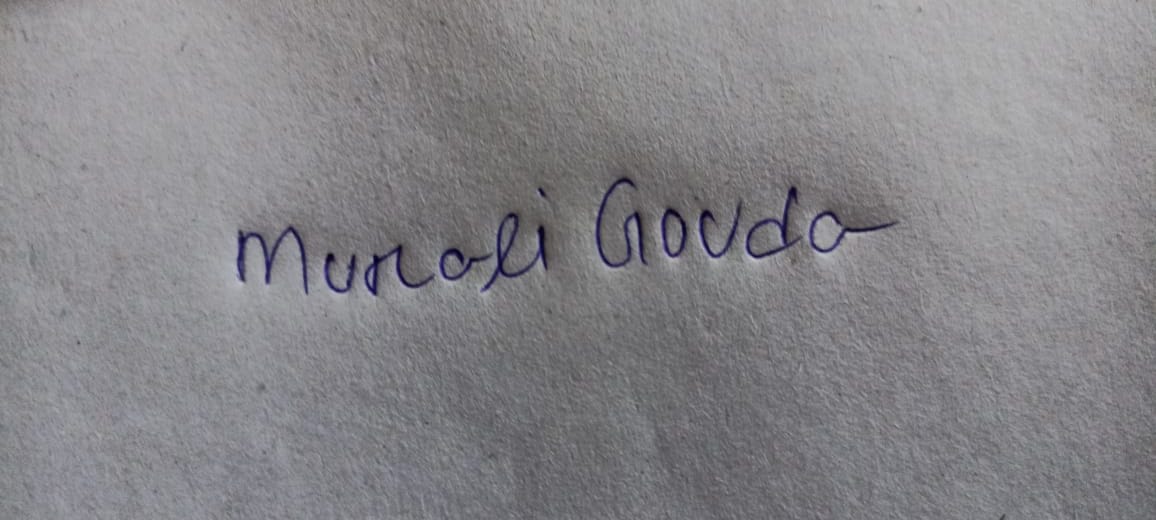 Murali Gouda